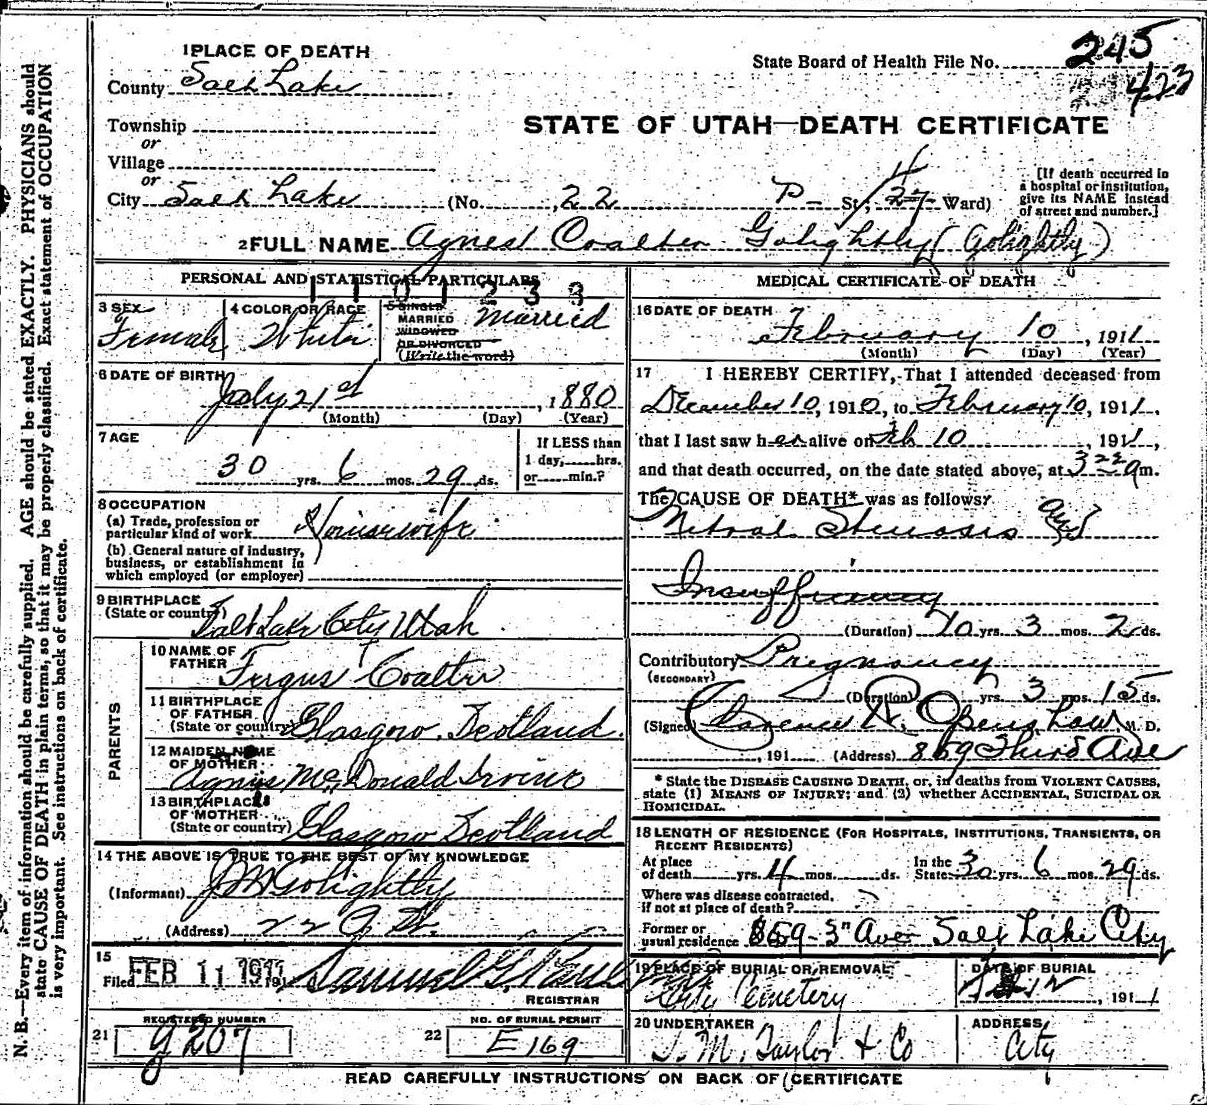 1 PLACE OF DEATH
County Salt Lake
Township
or
Village
or
City Salt Lake (No. 22 P St; 4 27 Ward)
State Board of Health File No. 245
423
STATE OF UTAH—DEATH CERTIFICATE
[If death occurred in
a hospital or institution,
give its NAME instead
of street and number.]
2 FULL NAME Agnes Coalter Golightly (Golightly)
PERSONAL AND STATISTICAL PARTICULARS
1101233
3 SEX
Female
4 COLOR OR RACE
White
5 SINGLE
MARRIED
WIDOWED
OR DIVORCED
(Write the word)
Married
6 DATE OF BIRTH
July 21st, 1880
(Month) (Day) (Year)
7 AGE
30 yrs. 6 mos. 29 ds.
If LESS than
1 day, hrs.
or min.?
8 OCCUPATION
(a) Trade, profession or
particular kind of work Housewife
(b) General nature of industry,
business, or establishment in
which employed (or employer)
9 BIRTHPLACE
(State or country) Salt Lake City Utah
PARENTS
10 NAME OF
FATHER Fergus Coalter
11 BIRTHPLACE
OF FATHER
(State or country) Glasgow Scotland
12 MAIDEN NAME
OF MOTHER
Agnes McDonald Irvine
13 BIRTHPLACE
OF MOTHER
(State or country) Glasgow Scotland
14 THE ABOVE IS TRUE TO THE BEST OF MY KNOWLEDGE
(Informant) J M Golightly
(Address) 22 P St.
15
Filed FEB 11 1911 Samuel G.
REGISTRAR
21 REGISTERED NUMBER
g 207
22 NO. OF BURIAL PERMIT
E 169
MEDICAL CERTIFICATE OF DEATH
16 DATE OF DEATH
February 10, 1911
(Month) (Day) (Year)
17 I HEREBY CERTIFY, That I attended deceased from
December 10, 1910, to February 10, 1911,
that I last saw her alive on Feb 10, 1911,
and that death occurred, on the date stated above, at 3 22 a m.
The CAUSE OF DEATH* was as follows:
Mitral Stenosis and
Insufficiency
(Duration) 10 yrs. 3 mos. 2 ds.
Contributory Pregnancy
(SECONDARY)
(Duration) yrs. 3 mos. 15 ds.
(Signed) Clarence W. Openshaw M. D.
, 191 (Address) 869 Third Ave
* State the DISEASE CAUSING DEATH, or, in deaths from VIOLENT CAUSES,
state (1) MEANS OF INJURY; and (2) whether ACCIDENTAL, SUICIDAL OR
HOMICIDAL.
18 LENGTH OF RESIDENCE (FOR HOSPITALS, INSTITUTIONS, TRANSIENTS, OR
RECENT RESIDENTS)
At place
of death yrs. 4 mos. ds.
In the
State 30 yrs. 6 mos. 29 ds.
Where was disease contracted,
if not at place of death?
Former or
usual residence 869-3rd Ave Salt Lake City
19 PLACE OF BURIAL OR REMOVAL
City Cemetery
DATE OF BURIAL
12, 1911
20 UNDERTAKER
S. M. Taylor & Co
ADDRESS
City
READ CAREFULLY INSTRUCTIONS ON BACK OF CERTIFICATE
N. B.—Every item of information should be carefully supplied. AGE should be stated EXACTLY. PHYSICIANS should
state CAUSE OF DEATH in plain terms, so that it may be properly classified. Exact statement of OCCUPATION
is very important. See instructions on back of certificate.